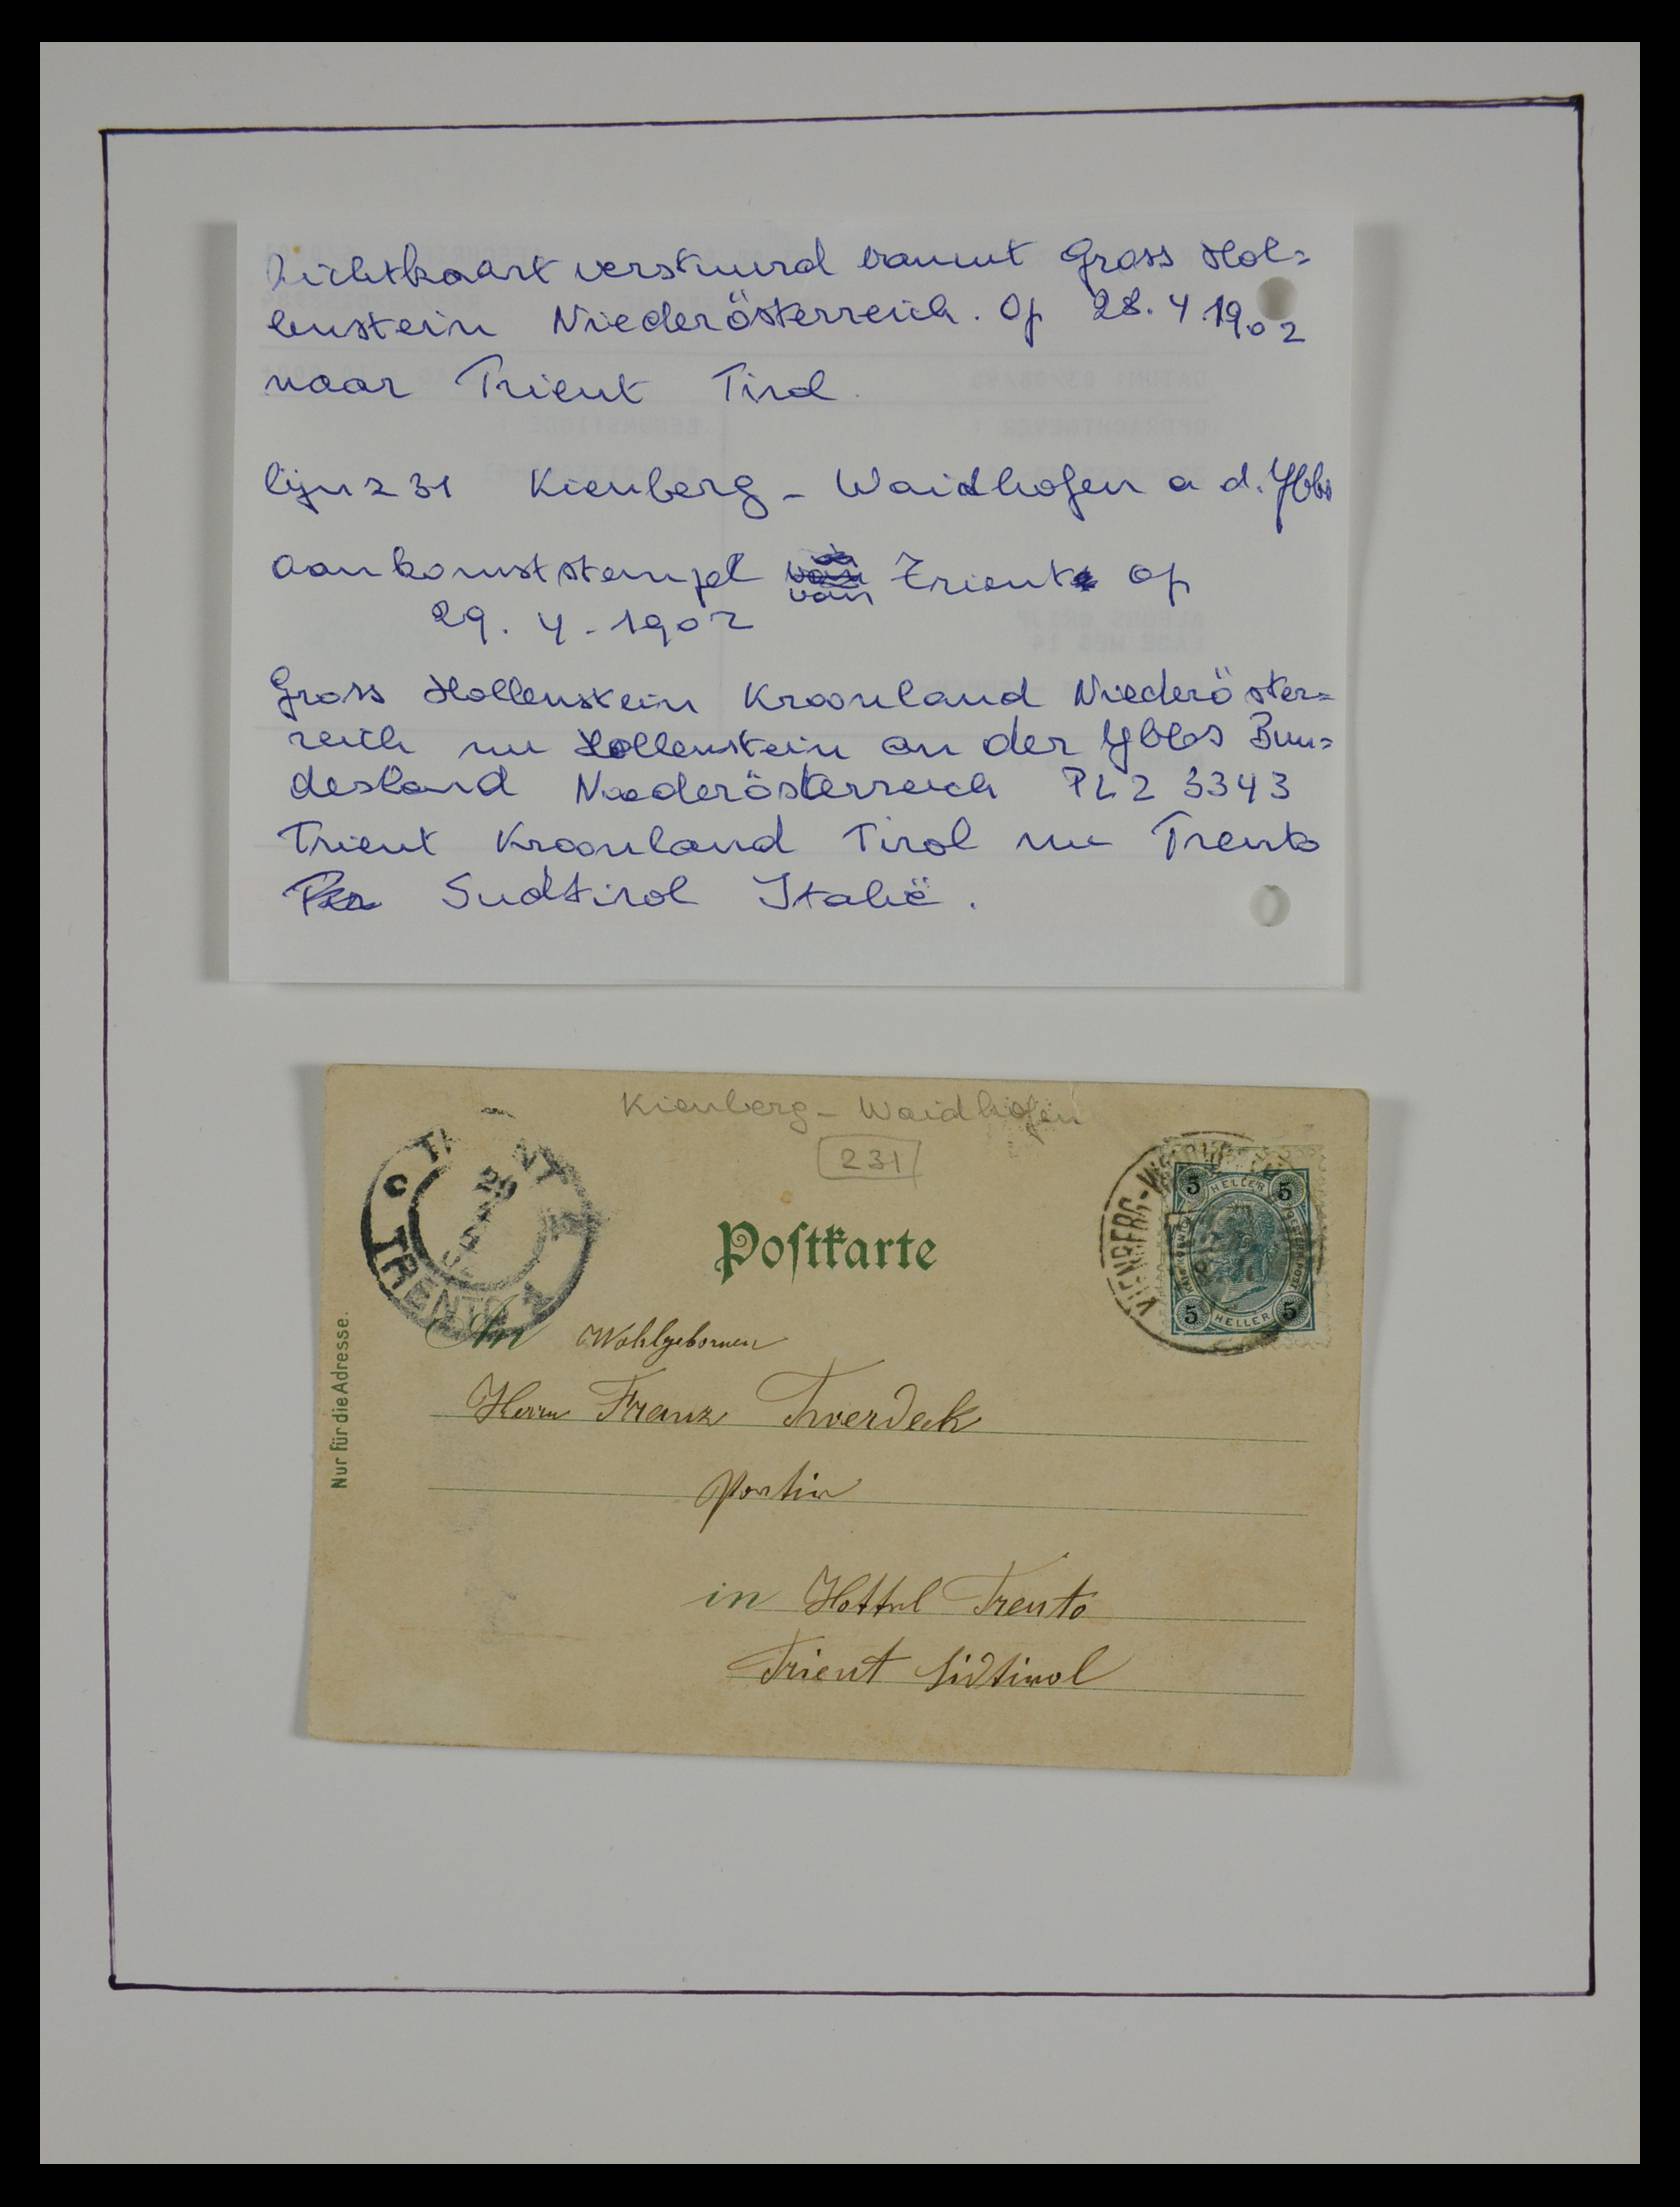 Lichtkaart verstuurd vanuit Gross Hol=
lenstein Niederösterreich. Op 28. 4 1902
naar Trient Tirol.
lijn 231 Kienberg - Waidhofen a d. Ybbs
aankomststempel van Trient op
29. 4. 1902
Gross Hollenstein Kroonland Niederöster=
reich nu Hollenstein an der Ybbs Bun=
desland Niederösterreich PLZ 3343
Trient Kroonland Tirol nu Trento
Sudtirol Italië.
Kienberg - Waidhofen
231
TRENTO
29
4
02
KIENBERG-W
5 HELLER 5
5 HELLER 5
Postkarte
Nur für die Adresse.
An Wohlgebornen
Herrn Franz Twerdek
Portier
in Hottel Trento
Trient Südtirol